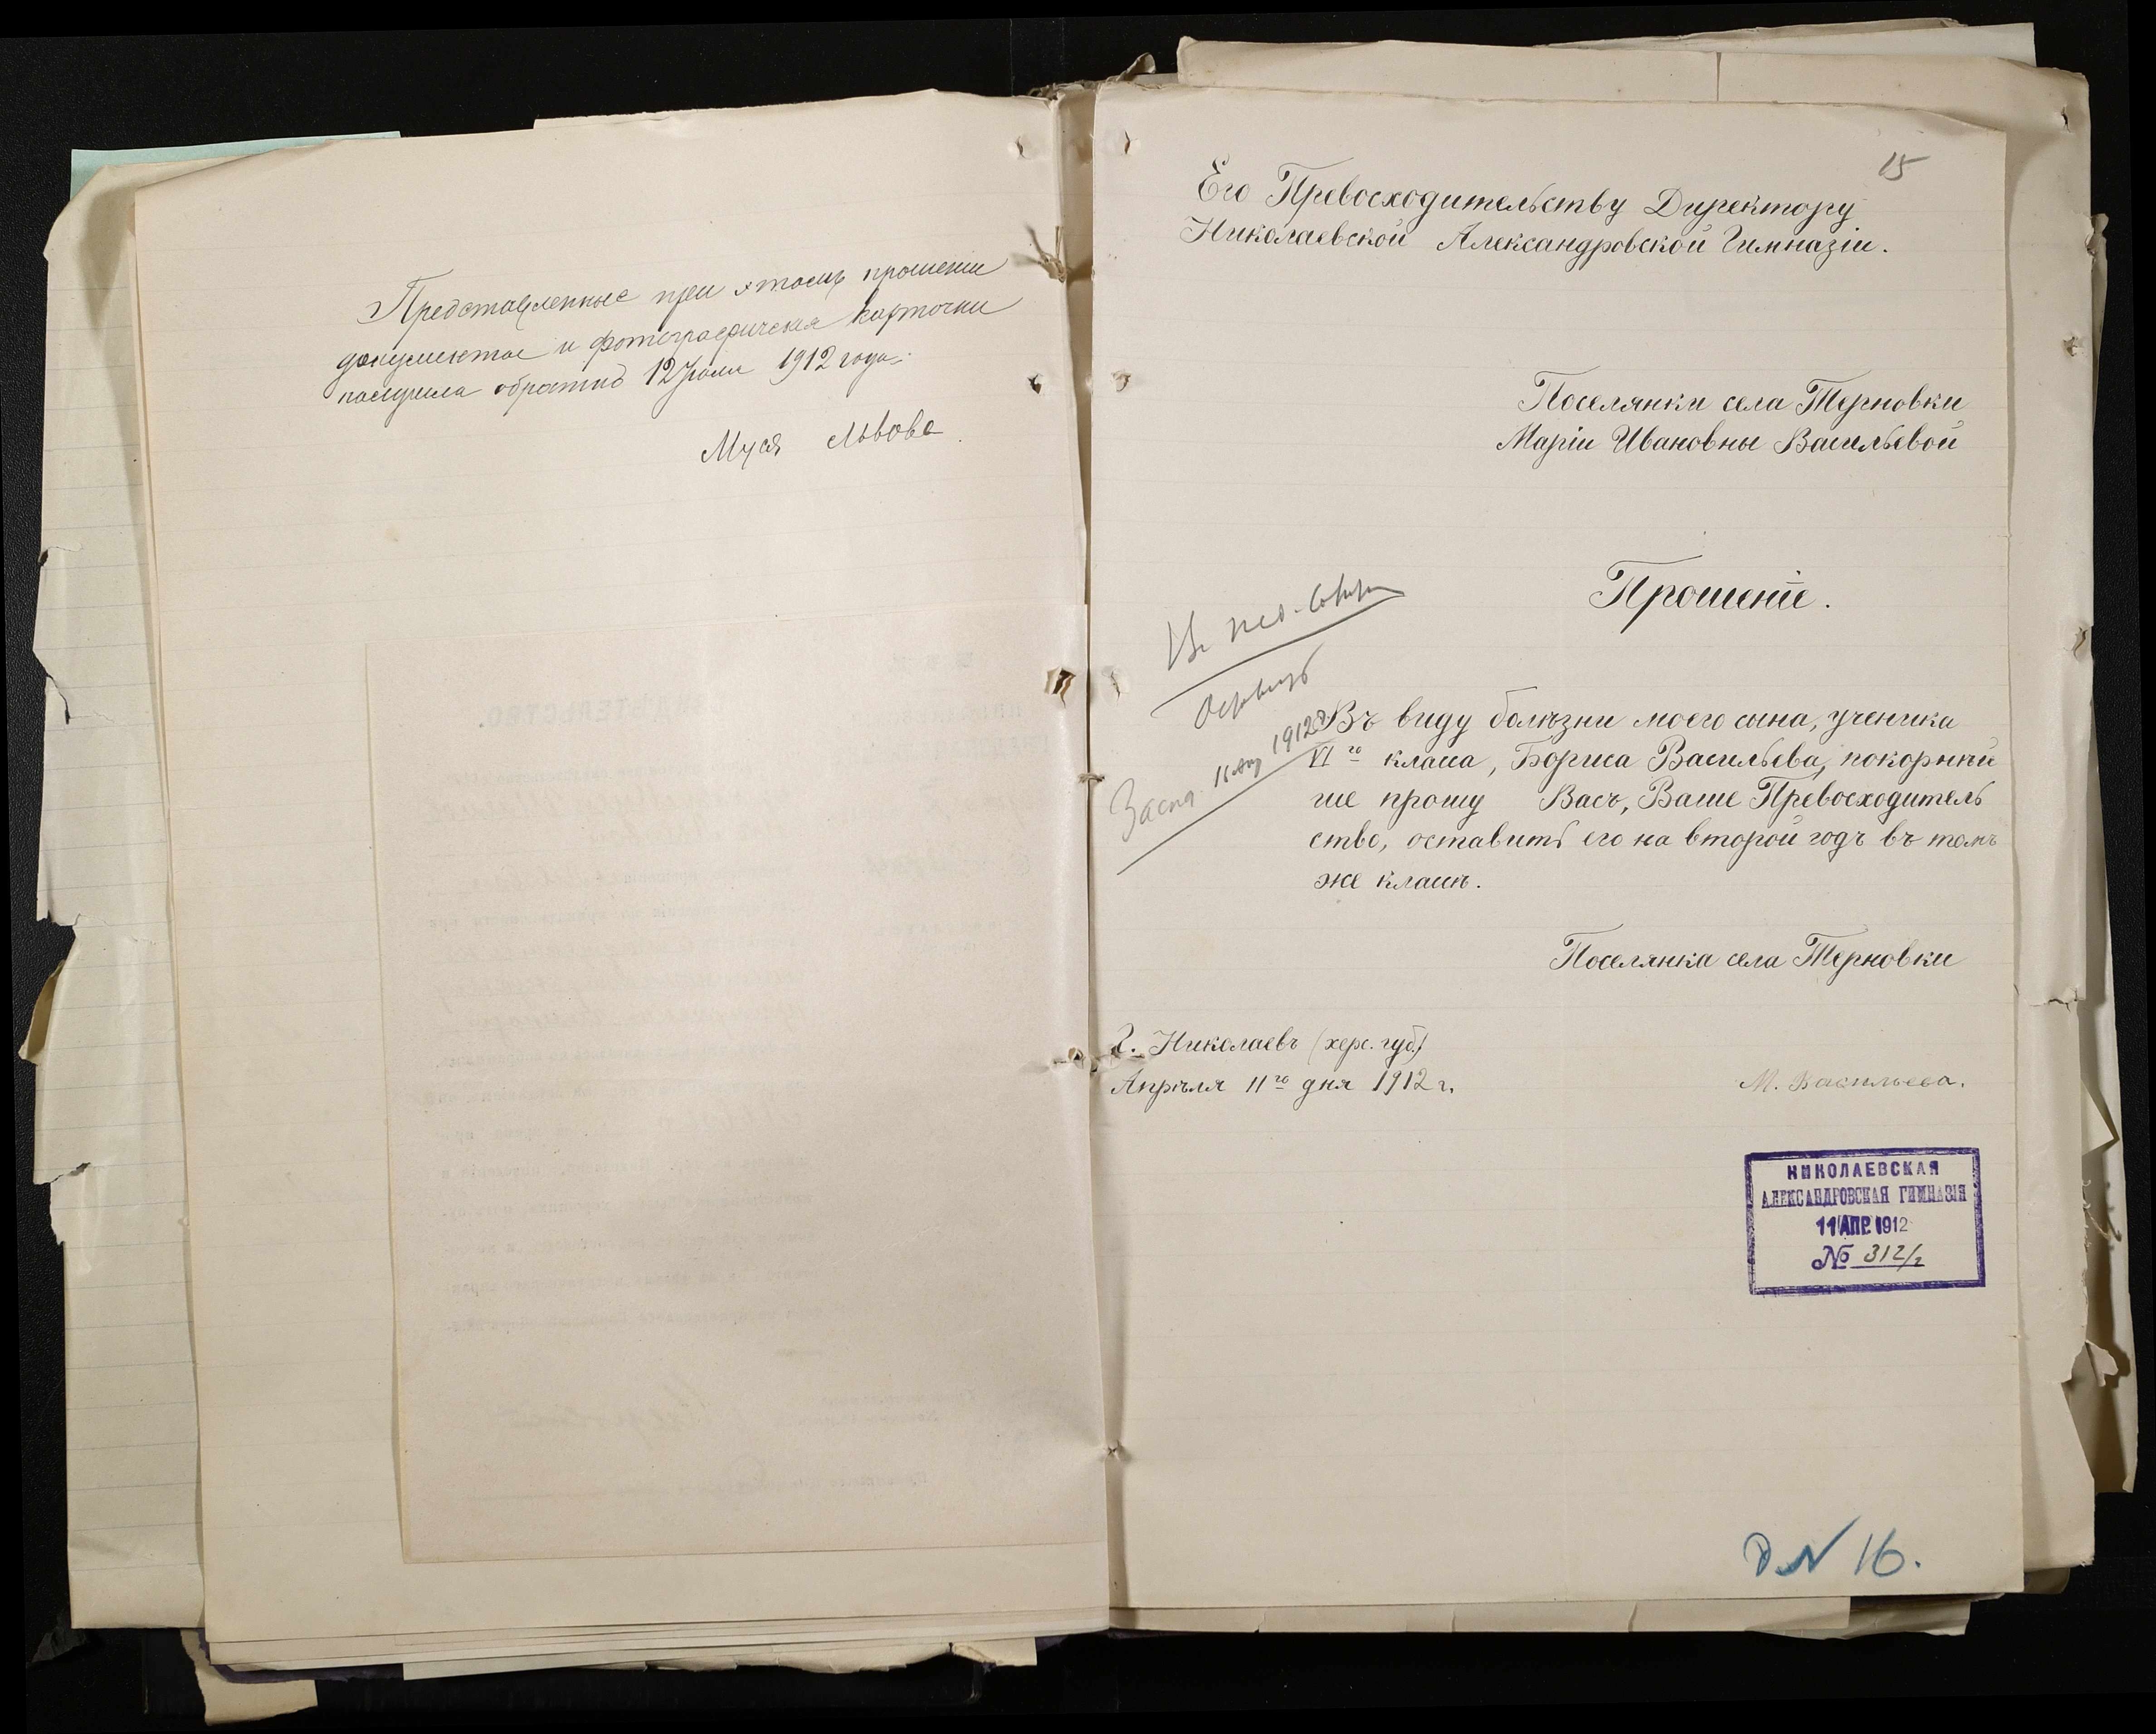 Представленные при этомъ прошении
документы и фотографическия карточки
получила обратно 12 Июля 1912 года.
Муся Львова
15
Его Превосходительству Директору
Николаевской Александровской Гимназіи.
Поселянки села Терновки
Маріи Ивановны Васильевой
Прошеніе.
Въ пед.
1912
Въ виду болѣзни моего сына, ученика
VI го класса, Бориса Васильева, покорнѣй
ше прошу Васъ, Ваше Превосходитель
ство, оставить его на второй годъ въ томъ
же классѣ.
Поселянка села Терновки
Г. Николаевъ (херс. губ.)
Апрѣля 11го дня 1912 г.
М. Васильева.
НИКОЛАЕВСКАЯ
АЛЕКСАНДРОВСКАЯ ГИМНАЗІЯ
11 АПР. 1912
№ 312/2
Д N 16.